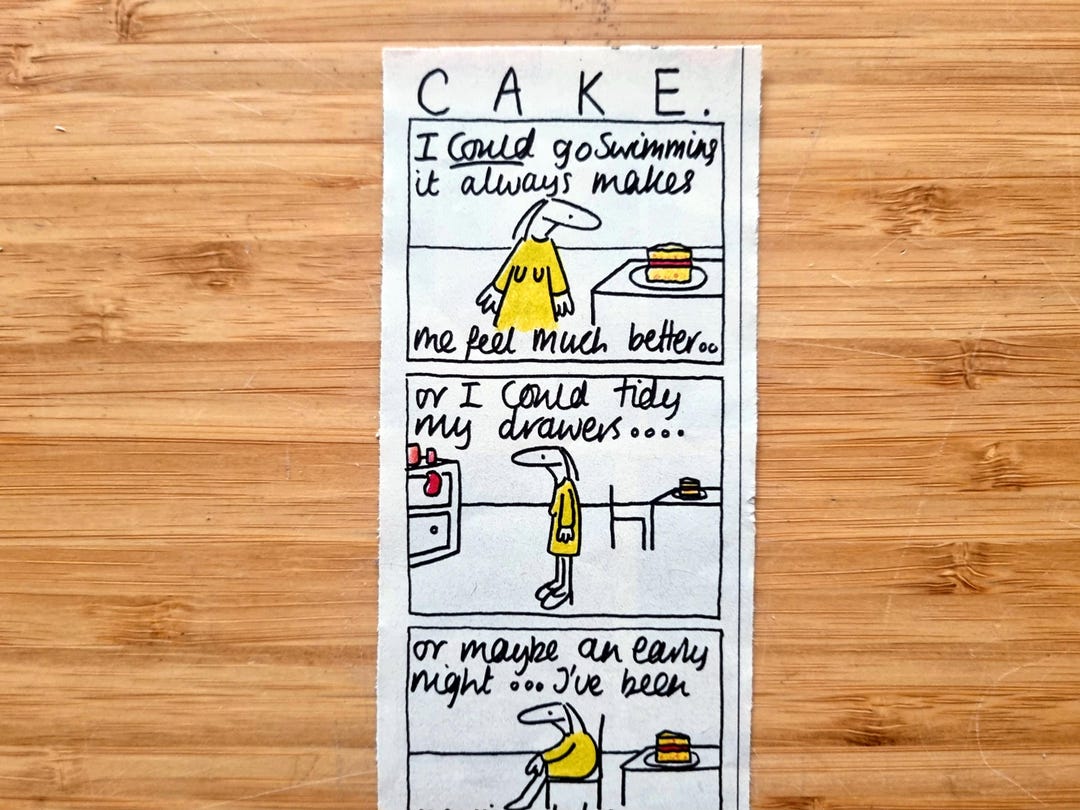 CAKE.
I Could go Swimming
it always makes
me feel much better..
or I Could tidy
my drawers....
or maybe an early
night ... I've been